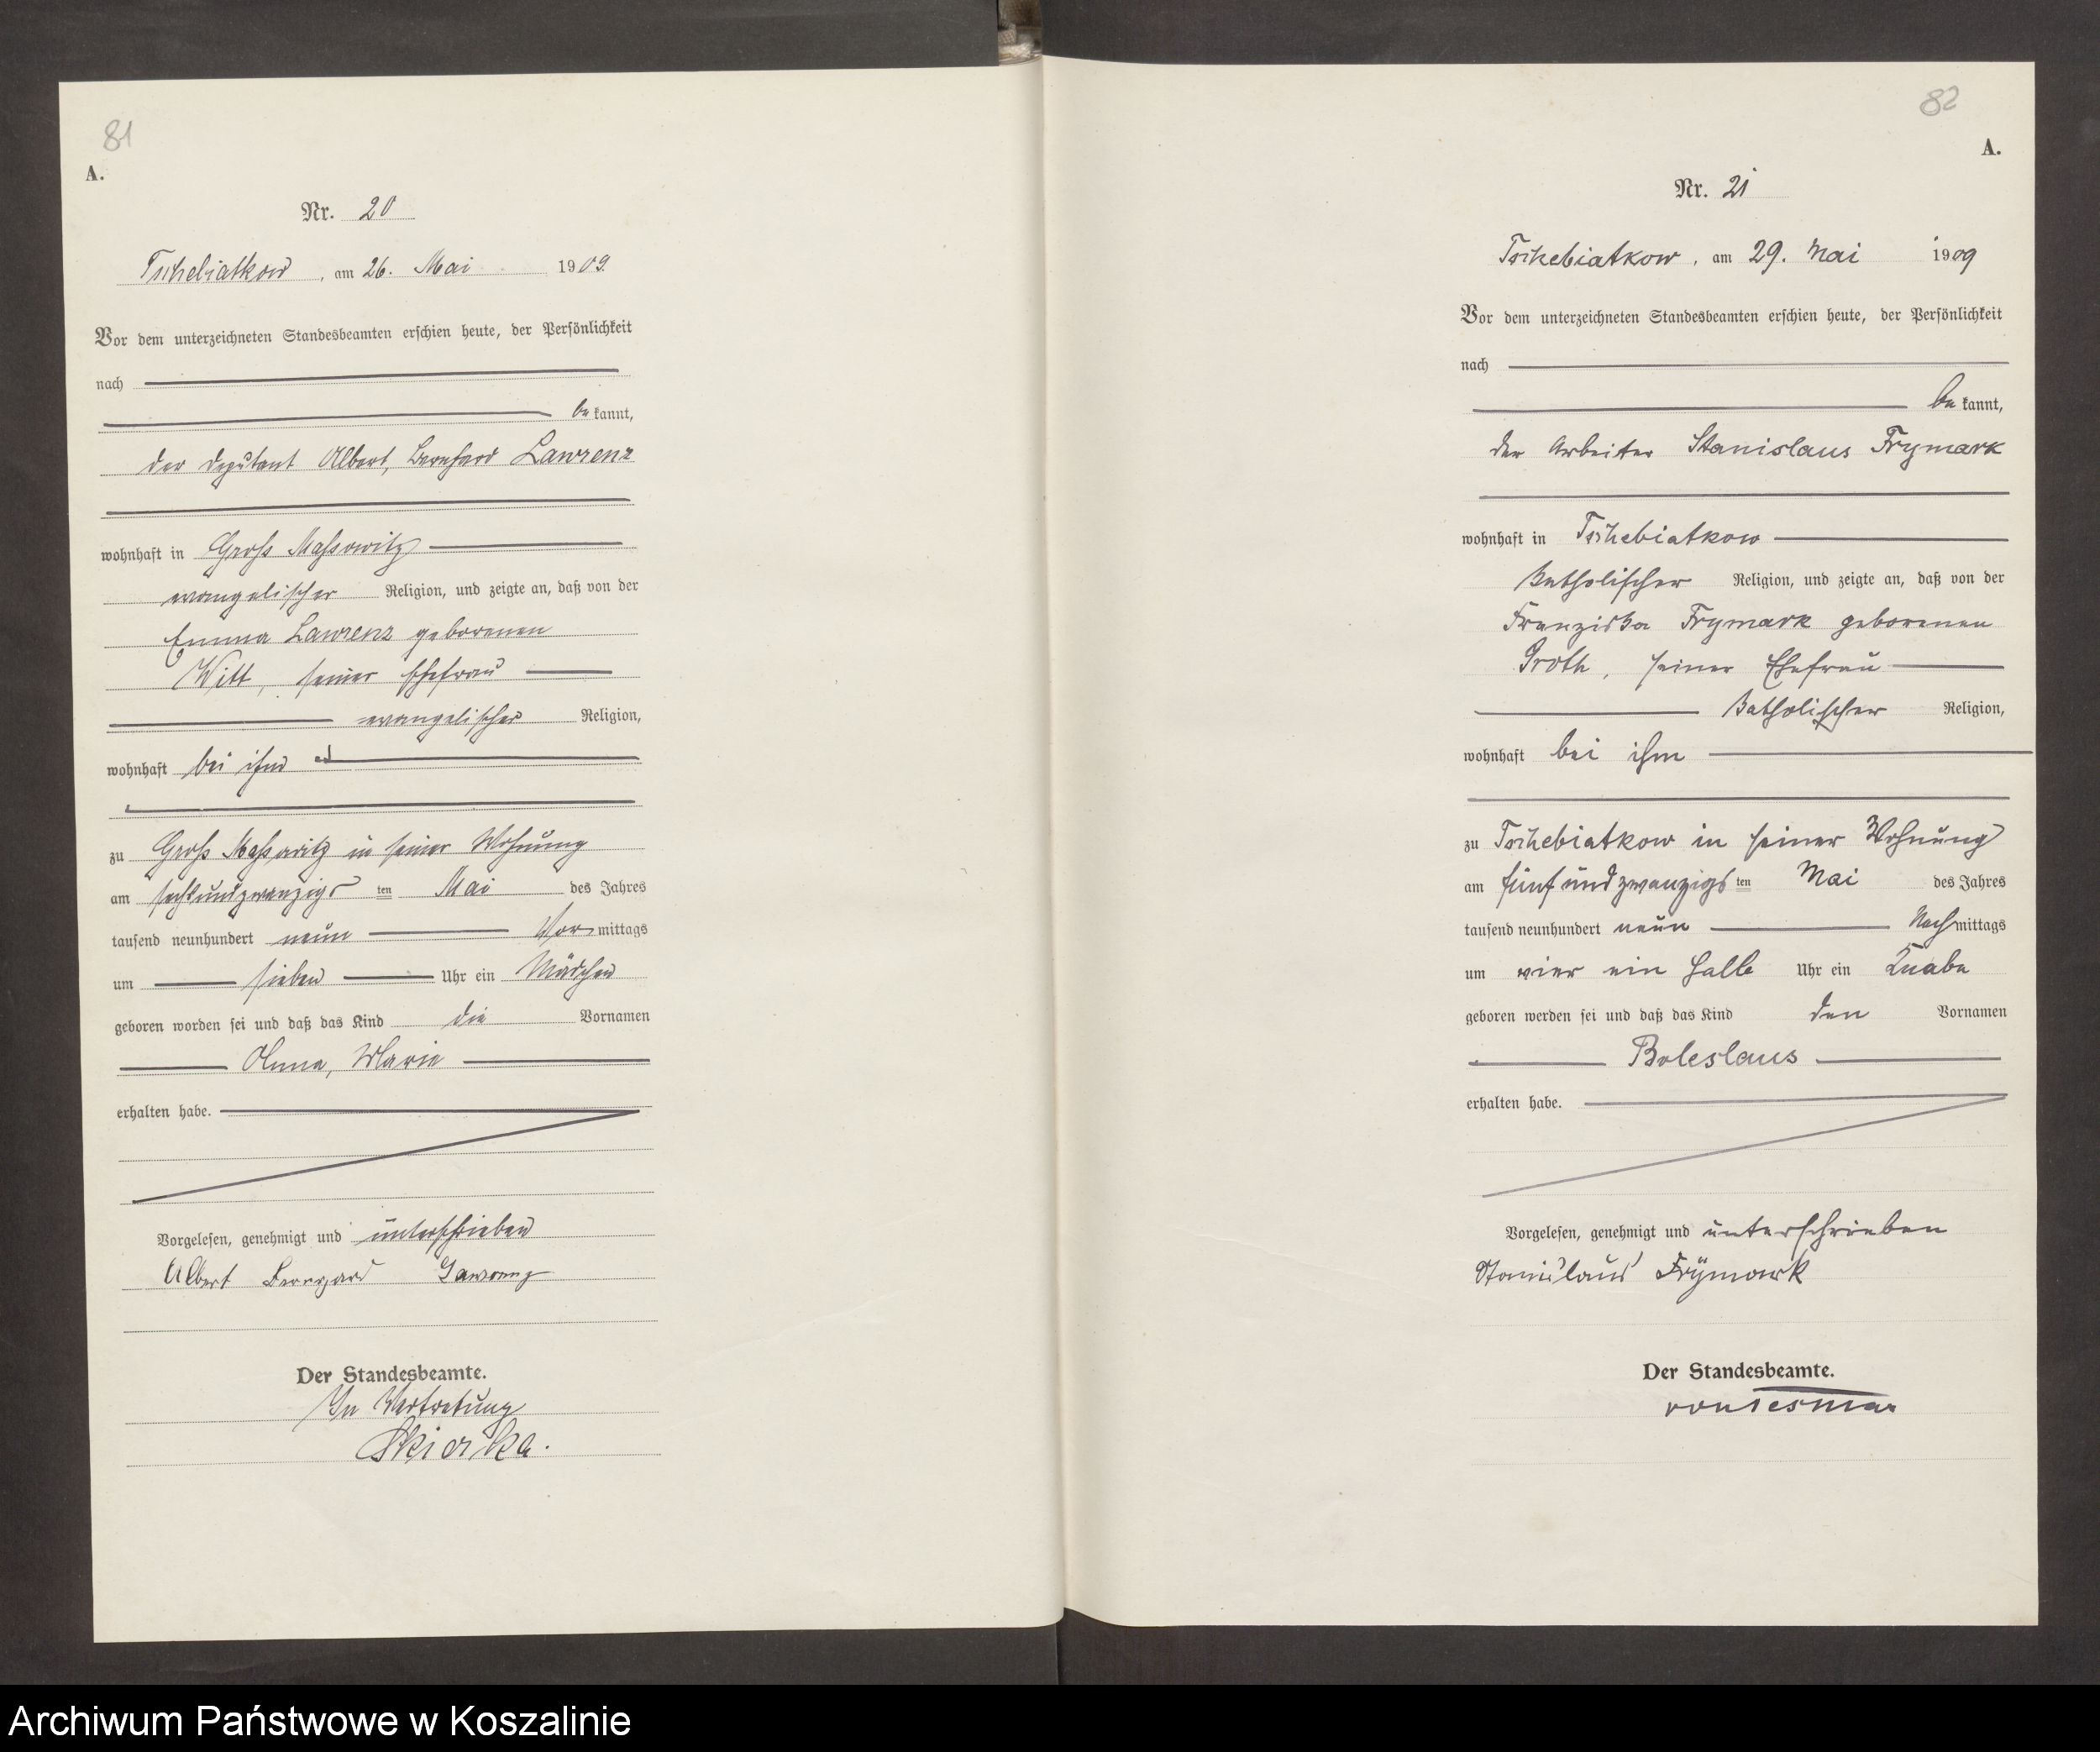 81
A.
Nr. 20
Tschebiatkow, am 26. Mai 1909.
Vor dem unterzeichneten Standesbeamten erschien heute, der Persönlichkeit
nach
bekannt,
der Deputant Albert, Bernhard Lawrenz
wohnhaft in Groß Massowitz
evangelischer Religion, und zeigte an, daß von der
Emma Lawrenz geborenen
Witt, seiner Ehefrau
evangelischer Religion,
wohnhaft bei ihm
zu Groß Massowitz in seiner Wohnung
am sechsundzwanzigsten Mai des Jahres
tausend neunhundert neun Vormittags
um sieben Uhr ein Mädchen
geboren worden sei und daß das Kind die Vornamen
Anna, Marie
erhalten habe.
Vorgelesen, genehmigt und unterschrieben
Albert Bernhard Lawrenz
Der Standesbeamte.
In Vertretung
Skiorka.
82
A.
Nr. 21
Tschebiatkow, am 29. Mai 1909
Vor dem unterzeichneten Standesbeamten erschien heute, der Persönlichkeit
nach
bekannt,
der Arbeiter Stanislaus Frymark
wohnhaft in Tschebiatkow
katholischer Religion, und zeigte an, daß von der
Franziska Frymark geborenen
Groth, seiner Ehefrau
katholischer Religion,
wohnhaft bei ihm
zu Tschebiatkow in seiner Wohnung
am fünfundzwanzigsten Mai des Jahres
tausend neunhundert neun Nachmittags
um vier ein halb Uhr ein Knabe
geboren werden sei und daß das Kind den Vornamen
Boleslaus
erhalten habe.
Vorgelesen, genehmigt und unterschrieben
Stanislaus Frymark
Der Standesbeamte.
Archiwum Państwowe w Koszalinie